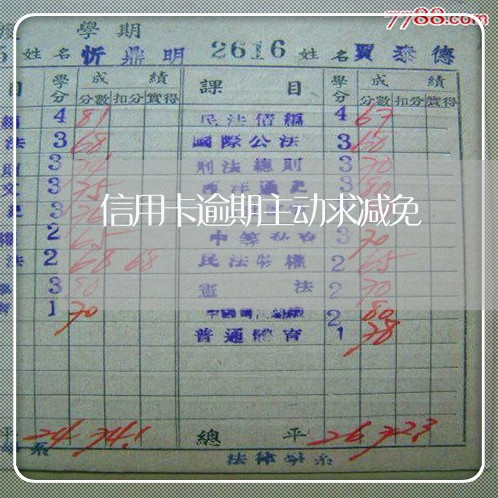 7788.com
學期
姓名 忻鼎明 2616 姓名 賈泰德
目 學分 成績 課目 學分 成績
分數 扣分 實得 分數 扣分 實得
4 81 民法債編 4 67
法 3 68 國際公法 3 60
3 刑法總則 3 70
文 3 75 西洋通史 3 80
3
信用卡逾期主动求减免
權 2 65 3 70
法 2 68 68 民法物權 2 65
3 80 憲法 2 70
育 1 70 2 80
普通體育 1 78
平 24 74.1 總平 26 72.3
系 法律學系